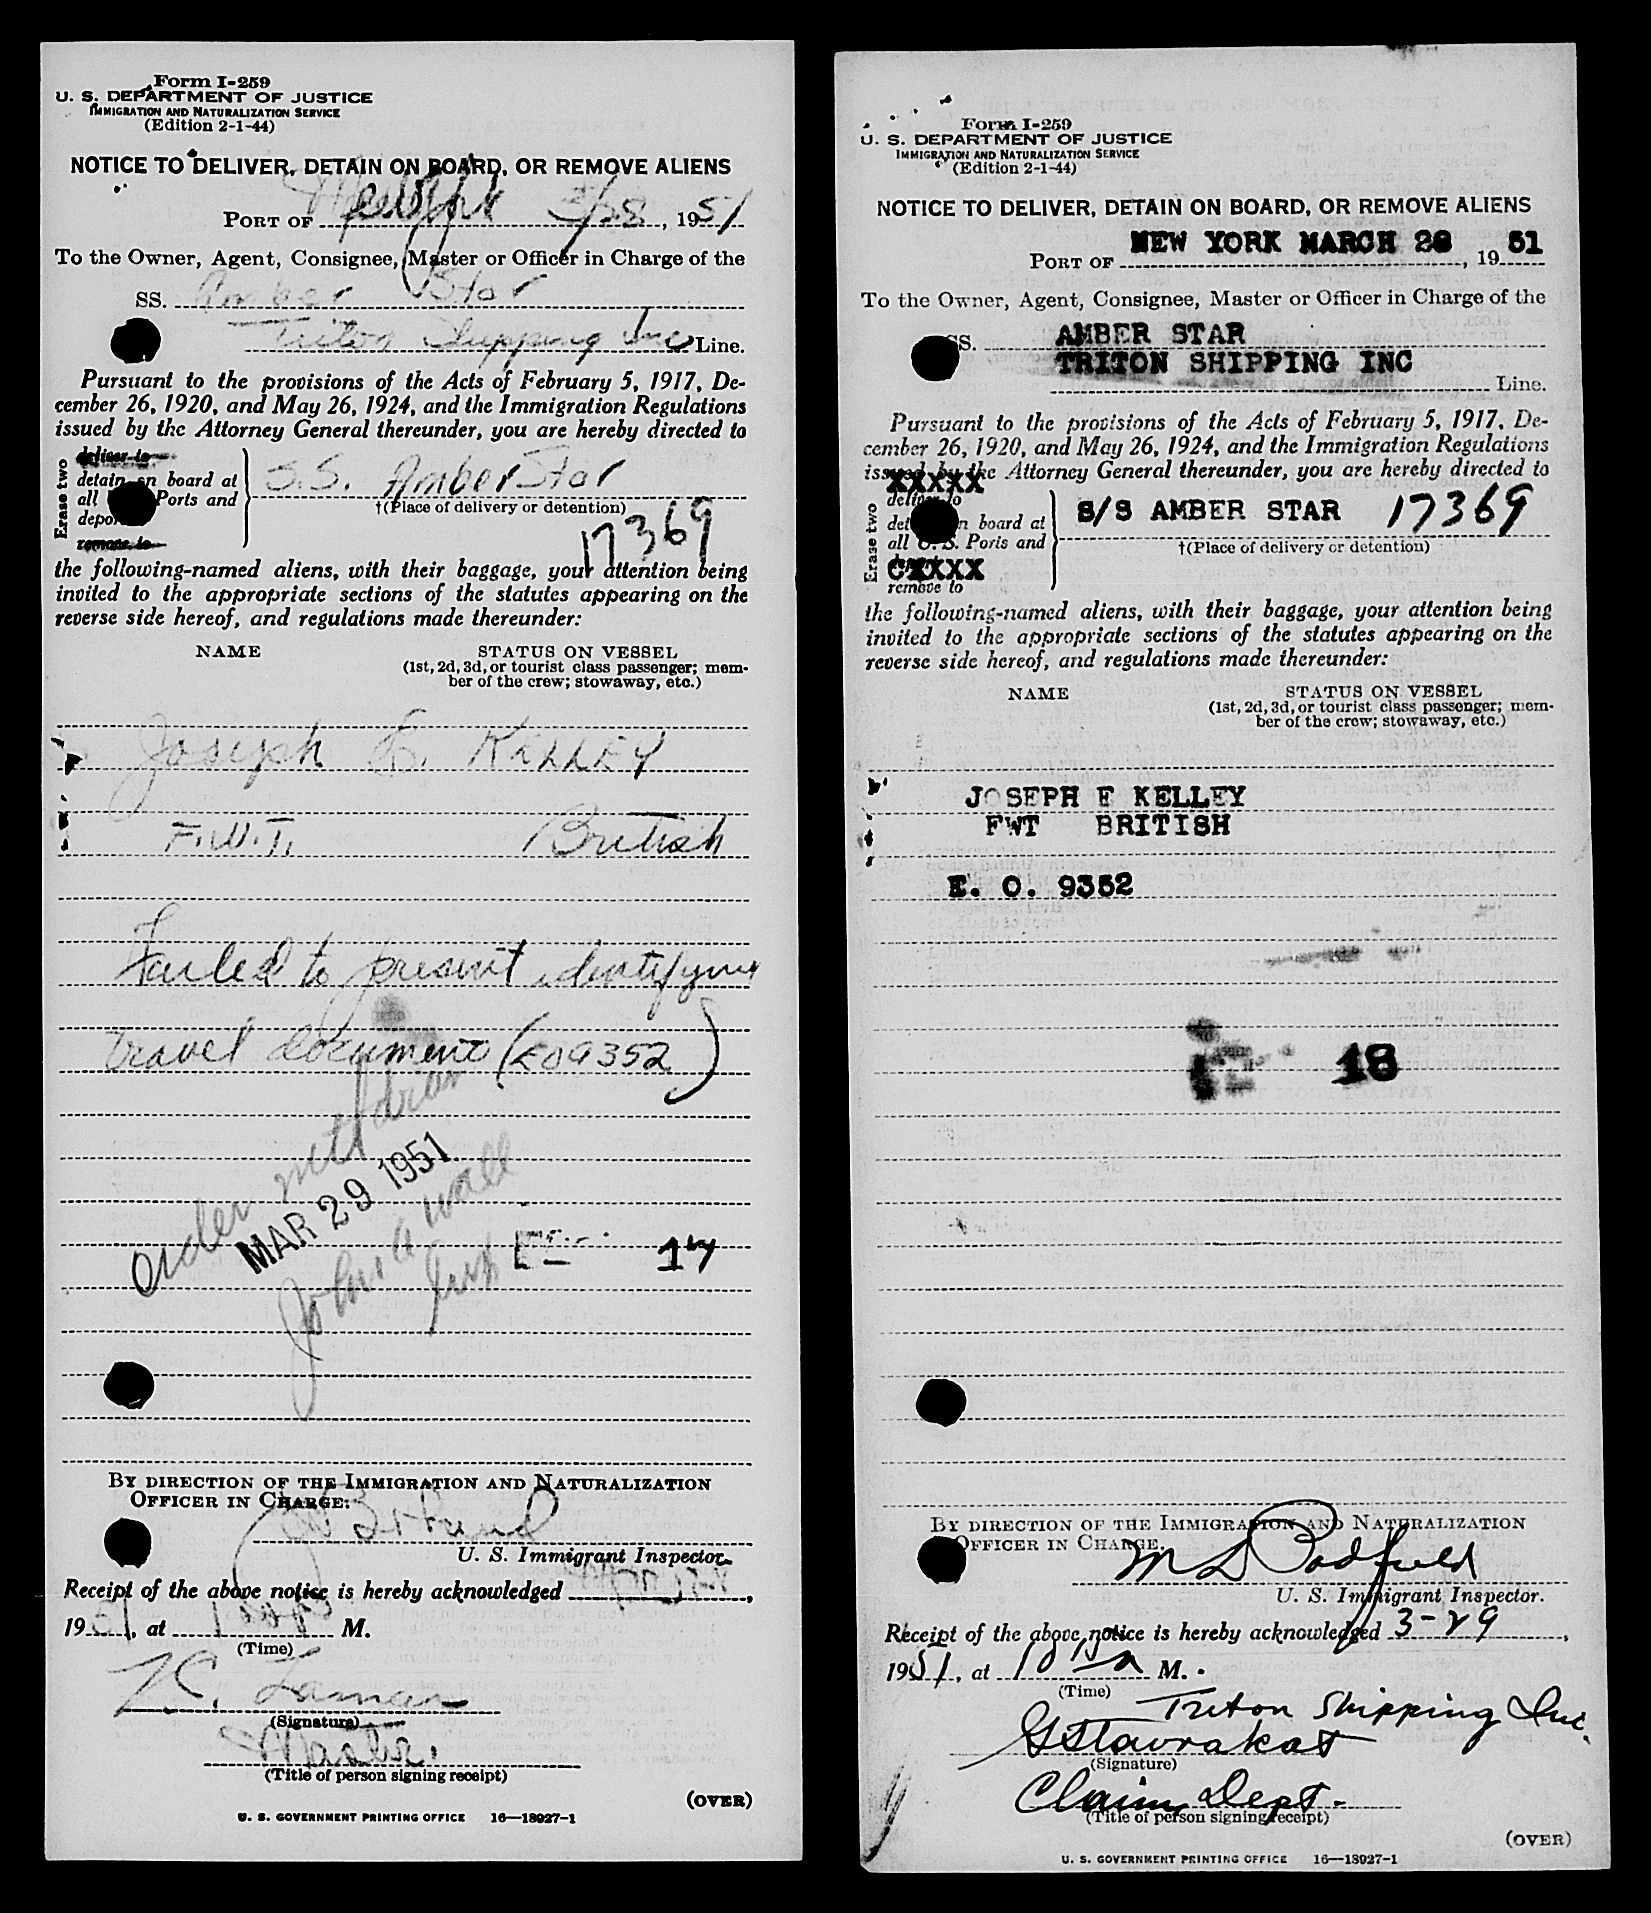 Form I-259
U. S. DEPARTMENT OF JUSTICE
IMMIGRATION AND NATURALIZATION SERVICE
(Edition 2-1-44)
NOTICE TO DELIVER, DETAIN ON BOARD, OR REMOVE ALIENS
PORT OF 3/28, 1951
To the Owner, Agent, Consignee, Master or Officer in Charge of the
SS. Amber Star
Triton Shipping Inc Line.
Pursuant to the provisions of the Acts of February 5, 1917, De-
cember 26, 1920, and May 26, 1924, and the Immigration Regulations
issued by the Attorney General thereunder, you are hereby directed to
Erase two
deliver to
detain on board at
all Ports and
S.S. Amber Star
†(Place of delivery or detention)
17369
remove to
the following-named aliens, with their baggage, your attention being
invited to the appropriate sections of the statutes appearing on the
reverse side hereof, and regulations made thereunder:
NAME STATUS ON VESSEL
(1st, 2d, 3d, or tourist class passenger; mem-
ber of the crew; stowaway, etc.)
Joseph E. KELLEY
F.W.T. British
Failed to present identifying
travel document (EO 9352)
Order withdrawn
MAR 29 1951
John A Wall
Insp
17
BY DIRECTION OF THE IMMIGRATION AND NATURALIZATION
OFFICER IN CHARGE:
U. S. Immigrant Inspector.
Receipt of the above notice is hereby acknowledged
1951, at M.
(Time)
(Signature)
Master.
(Title of person signing receipt)
(OVER)
U. S. GOVERNMENT PRINTING OFFICE 16—18927-1
Form I-259
U. S. DEPARTMENT OF JUSTICE
IMMIGRATION AND NATURALIZATION SERVICE
(Edition 2-1-44)
NOTICE TO DELIVER, DETAIN ON BOARD, OR REMOVE ALIENS
PORT OF NEW YORK MARCH 28, 1951
To the Owner, Agent, Consignee, Master or Officer in Charge of the
SS. AMBER STAR
TRITON SHIPPING INC Line.
Pursuant to the provisions of the Acts of February 5, 1917, De-
cember 26, 1920, and May 26, 1924, and the Immigration Regulations
issued by the Attorney General thereunder, you are hereby directed to
XXXXX
Erase two
deliver to
detain on board at
all U. S. Ports and
S/S AMBER STAR 17369
†(Place of delivery or detention)
CXXXX
remove to
the following-named aliens, with their baggage, your attention being
invited to the appropriate sections of the statutes appearing on the
reverse side hereof, and regulations made thereunder:
NAME STATUS ON VESSEL
(1st, 2d, 3d, or tourist class passenger; mem-
ber of the crew; stowaway, etc.)
JOSEPH E KELLEY
FWT BRITISH
E. O. 9352
18
BY DIRECTION OF THE IMMIGRATION AND NATURALIZATION
OFFICER IN CHARGE.
M L Padfield
U. S. Immigrant Inspector.
Receipt of the above notice is hereby acknowledged 3-29,
1951, at 10 15 a M.
(Time)
Triton Shipping Inc.
G Stavrakas
(Signature)
Claim Dept.
(Title of person signing receipt)
(OVER)
U. S. GOVERNMENT PRINTING OFFICE 16—18927-1